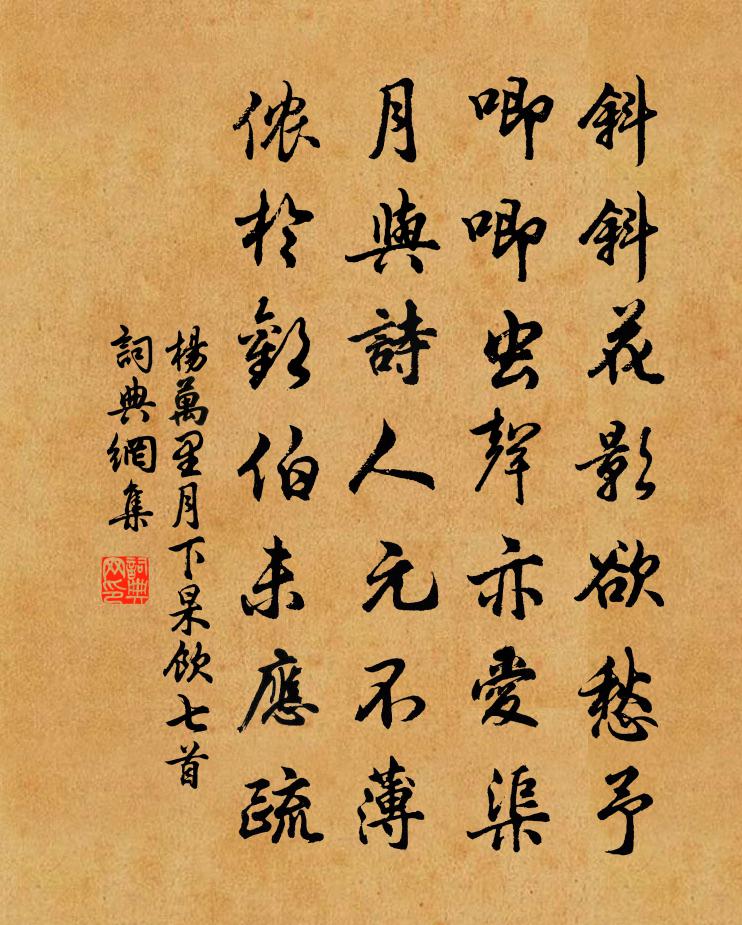 斜斜花影欲愁予
唧唧虫聲亦愛渠
月與詩人元不薄
儂於歡伯未應疏
楊萬里月下杲飲七首
詞典網集
詞典網印